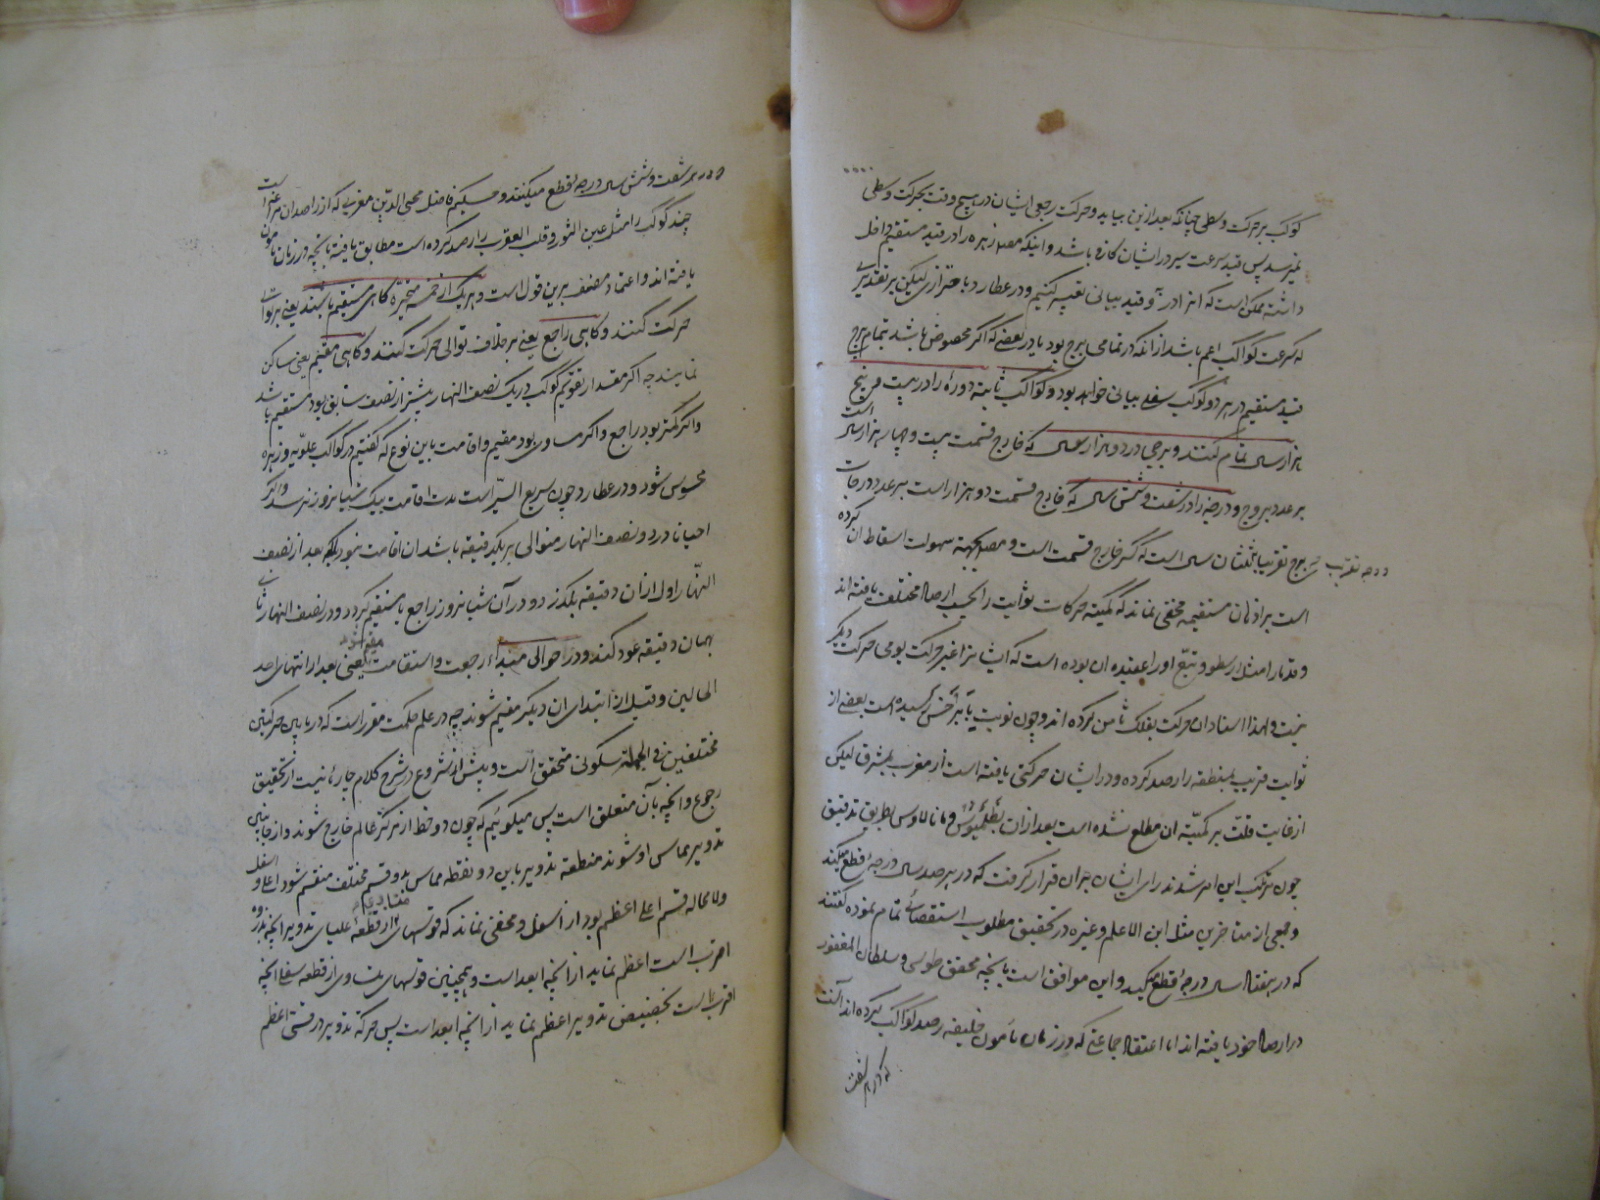 کوکب بر حرکت وسطی چنانکه بعد ازین بیاید و حرکت رجعی ایشان در هیچ وقت بحرکت وسطی
نمیرسد پس قید سرعت سیر در ایشان کافی باشد و اینکه مصنف زهره را در قید مستقیم داخل
داشته ممکن است که انرا در قید بیانی تعبیه کنیم و در عطارد باحترازی لیکن بر تقدیری
که سرعت کواکب اعم باشد از انکه در تمامی برج بود یا در بعضی که اگر مخصوص باشد بتمام برج
قید مستقیم در هر دو کوکب سفلی بیانی خواهد بود و کواکب ثابته دوره را در بیست و پنج
هزار سال تمام کنند و برجی در دو هزار سال که خارج قسمت بیست و چهار هزار سال است
بر عدد بروج و درجه را در شصت و شش سال که خارج قسمت دو هزار است بر عدد درجات
برج تقریبا ثلثان سال است که کسر خارج قسمت است و مصنف بجهة سهولت اسقاط ان کرده
درجه تقریب
است بر اذهان مستقیمه مخفی نماند که کمیته حرکات ثوابت را بحسب ارصاد مختلف یافته اند
و قدما را مثل ارسطو و تبع او را عقیده ان بوده است که ایشانرا غیر حرکت یومی حرکت دیگر
نیست و لهذا اسناد ان حرکت بفلک ثامن کرده اند و چون نوبت بابرخس رسیده است بعضی از
ثوابت قریب بمنطقه را رصد کرده و در ایشان حرکتی یافته است از مغرب بمشرق لیکن
از غایت قلت بر کمیته ان مطلع نشده است بعد از ان بطلمیوس و مانالاوس بطریق تدقیق
چون مرتکب این امر شدند رای ایشان بران قرار گرفت که در هر صد سال درجه قطع میکند
و جمعی از متاخرین مثل ابن الاعلم و غیره در تحقیق مطلوب استقصای تمام نموده گفتند
که در هفتاد سال درجه قطع میکند و این موافق است بانچه محقق طوسی و سلطان المغفور
در ارصاد خود یافته اند اما اعتقاد جماعتی که در زمان مامون خلیفه رصد کواکب کرده اند انست
که در هر شصت
که در هر شصت و شش سال درجه قطع میکنند و حکیم فاضل محیی الدین مغربی که از راصدان مراغه است
چند کوکب را مثل عین الثور و قلب العقرب را رصد کرده است مطابق یافته بانچه در زمان مامون
یافته اند و اعتماد مصنف برین قول است و هر یک از خمسه متحیره گاهی مستقیم باشند یعنی بر توالی
حرکت کنند و گاهی راجع یعنی بر خلاف توالی حرکت کنند و گاهی مقیم یعنی ساکن
نمایند چه اگر مقدار تقویم کوکب در یک نصف النهار بیشتر از نصف سابق بود مستقیم باشد
و اگر کمتر بود راجع و اگر مساوی بود مقیم و اقامت باین نوع که گفتیم در کواکب علویه و زهره
محسوس شود و در عطارد چون سریع السیر است مدت اقامت بیک شبانروز نرسد و اگر
احیانا در دو نصف النهار متوالی بر یک دقیقه باشد ان اقامت نبود بلکه بعد از نصف
النهار اول از ان دقیقه بگذرد و در آن شبانروز راجع یا مستقیم گردد و در نصف النهار ثانی
بهمان دقیقه عود کند و در حوالی مبداء رجعت و استقامت مقیم شوند یعنی بعد از انتهای احد
الحالین و قبل از ابتدای ان دیگر مقیم شوند چه در علم حکمت مقرر است که در مابین حرکتین
مختلفین فی الجمله سکونی متحقق است و پیش از شروع در شرح کلام چاره نیست از تحقیق
رجوع و انچه بآن متعلق است پس میگوئیم که چون دو خط از مرکز عالم خارج شوند و از جانبی
تدویر مماس او شوند منطقه تدویر باین دو نقطه مماس بدو قسم مختلف منقسم شود اعلی و اسفل
و لا محاله قسم اعلی اعظم بود از اسفل و مخفی نماند که قوسهای متشابه از قطعه علیای تدویر انچه بذروه
اقرب است اعظم نماید از انچه ابعد است و همچنین قوسهای متساوی از قطعه سفلی انچه
اقرب است بحضیض تدویر اعظم نماید از انچه ابعد است پس حرکة تدویر در قسی اعظم